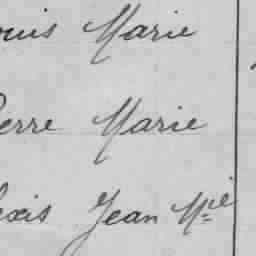 ouis Marie
ierre Marie
lexis Jean Mie